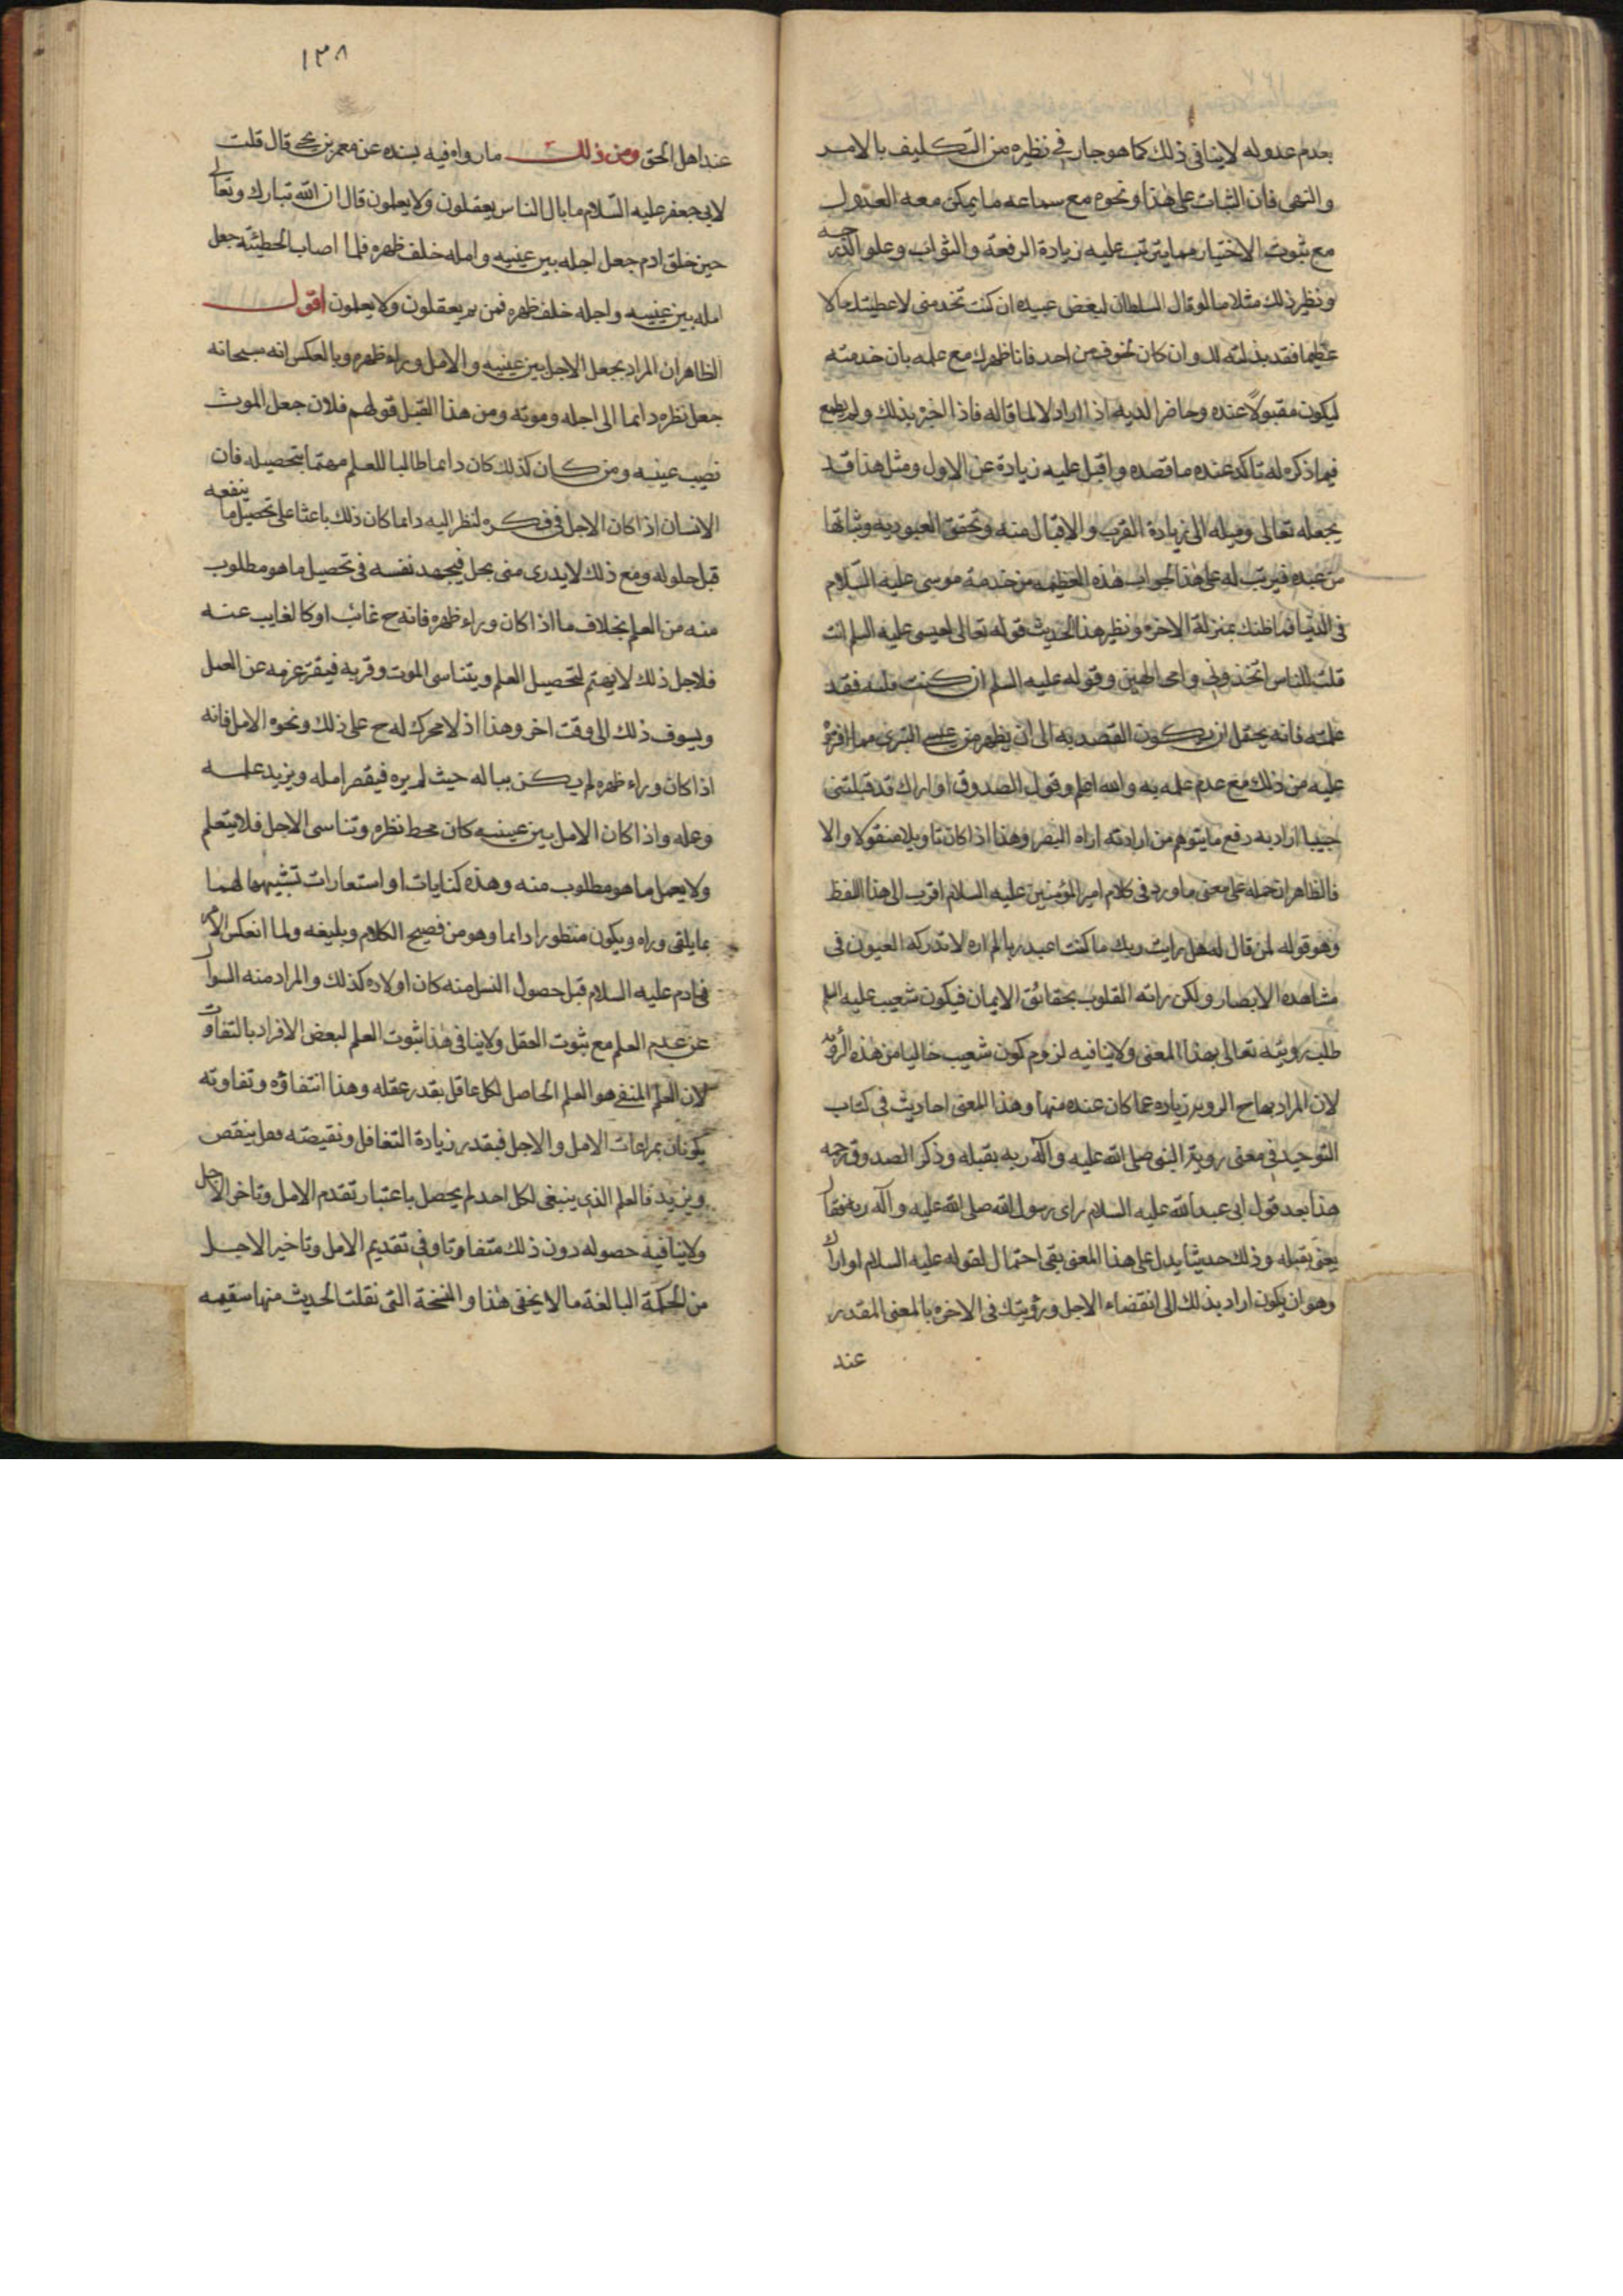 بعدم عدوله لا ينافى ذلك كما هو جار فى نظيره من التكليف بالامر
والنهى فان الثبات على هذا ونحوه مع سماعه ما يمكن معه العدول
مع ثبوت الاختيار مما يترتب عليه زيادة الرفعة والثواب وعلو الدرجه
ونظير ذلك مثلا ما لو قال السلطان لبعض عبيده ان كنت تخدمنى لاعطيتك مالا
عظيما فقد بذلته لك وان كان لخوف من احد فانا ظهرك مع علمه بان خدمته
ليكون مقبولاً عنده وحاضرا لديه اذا اراد لا لما قاله فاذا اخبر بذلك ولم يطمع
فيما ذكره له تاكد عنده ما قصده واقبل عليه زيادة عن الاول ومثل هذا قد
يجعله تعالى وسيله الى زيادة القرب والاقبال منه وتحقق العبوديه وثباتها
من عبده فيرتب له على هذا الجواب هذه العظيمه من خدمة موسى عليه السلام
فى الدنيا فما ظنك بمنزلة الاخره ونظير هذا الحديث قوله تعالى لعيسى عليه السلم ءانت
قلت للناس اتخذونى وامى الهين وقوله عليه السلم ان كنت قلته فقد
علمته فانه يحتمل ان يكون القصد به الى ان يظهر من عيسى التبرى مما افترى
عليه من ذلك مع عدم علمه به والله اعلم وقول الصدوق او اراك قد قبلتنى
حبيبا اراد به دفع ما يتوهم من ارادته اراه البصر وهذا اذا كان تاويلا منقولا والا
فالظاهر ان حمله على معنى ما ورد فى كلام امير المؤمنين عليه السلام اقرب الى هذا اللفظ
وهو قوله لمن قال له هل رايت ربك ما كنت اعبد ربا لم اره لا تدركه العيون فى
مشاهده الابصار ولكن راته القلوب بحقائق الايمان فيكون شعيب عليه السلم
طلب رويته تعالى بهذا المعنى ولا ينافيه لزوم كون شعيب خاليا من هذه الرؤيه
لان المراد بها ح الرويه زياده عما كان عنده منها وهذا المعنى احاديث فى كتاب
التوحيد فى معنى رويته النبى صلى الله عليه وآله ربه بقلبه وذكر الصدوق رحمه
هذا بعد قول ابى عبد الله عليه السلام راى رسول الله صلى الله عليه وآله ربه فقال
يعنى بقلبه وذلك حديثا يدل على هذا المعنى بقى احتمال لقوله عليه السلام او اراك
وهو ان يكون اراد بذلك الى انقضاء الاجل ورؤيتك فى الاخره بالمعنى المقدر
عند
١٣٨
عند اهل الحق ومن ذلك ما رواه فيه بسنده عن معمر بن يحيى قال قلت
لابى جعفر عليه السلام ما بال الناس يعقلون ولا يعلمون قال ان الله تبارك وتعالى
حين خلق ادم جعل اجله بين عينيه وامله خلف ظهره فلما اصاب الخطيئة جعل
امله بين عينيه واجله خلف ظهره فمن ثم يعقلون ولا يعلمون اقول
الظاهر ان المراد بجعل الاجل بين عينيه والامل وراء ظهره وبالعكس انه سبحانه
جعل نظره دائما الى اجله وموته ومن هذا القبيل قولهم فلان جعل الموت
نصب عينيه ومن كان كذلك كان دائما طالبا للعلم مهتما بتحصيله فان
الانسان اذا كان الاجل فى فكره لنظر اليه دائما كان ذلك باعثا على تحصيل ما ينفعه
قبل حلوله ومع ذلك لا يدرى متى يحل فيجهد نفسه فى تحصيل ما هو مطلوب
منه من العلم بخلاف ما اذا كان وراء ظهره فانه ح غائب او كالغايب عنه
فلاجل ذلك لا يهتم لتحصيل العلم ويتناسى الموت وقربه فيفتر عزمه عن العمل
ويسوف ذلك الى وقت اخر وهذا اذ لا محرك له ح على ذلك ونحوه الامل فانه
اذا كان وراء ظهره لم يكن بباله حيث لم يره فيقصر امله ويزيد علمه
وعمله واذا كان الامل بين عينيه كان محط نظره وتناسى الاجل فلا يتعلم
ولا يعمل ما هو مطلوب منه وهذه كنايات او استعارات تشبيها لهما
بما يلقى وراه ويكون منظورا دائما وهو من فصيح الكلام وبليغه ولما انعكس الامر
فى ادم عليه السلام قبل حصول النسل منه كان اولاده كذلك والمراد منه السؤال
عن عدم العلم مع ثبوت العقل ولا ينافى هذا ثبوت العلم لبعض الافراد بالتفاوت
لان العلم المنفى هو العلم الحاصل لكل عاقل بقدر عقله وهذا انتفاؤه وتفاوته
يكونان بمراعات الامل والاجل فبقدر زيادة التغافل ونقيصته فعل ينقص
ويزيد فالعلم الذى ينبغى لكل احد لم يحصل باعتبار تقدم الامل وتاخر الاجل
ولا ينافيه حصوله دون ذلك متفاوتا وفى تقديم الامل وتاخير الاجل
من الحكمة البالغة ما لا يخفى هذا والنسخة التى نقلت الحديث منها سقيمه